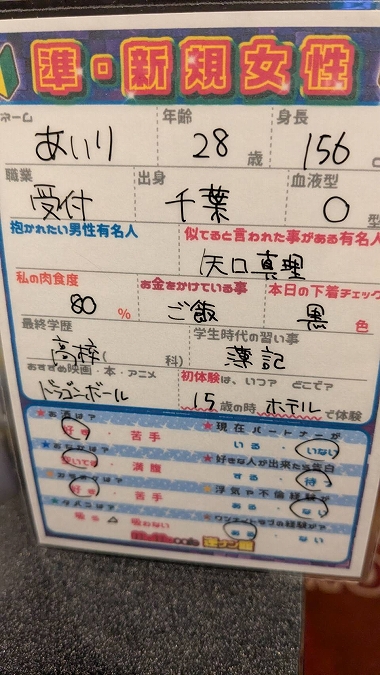 準・新規女性
ネーム 年齢 身長
あいり 28歳 156
職業 出身 血液型
受付 千葉 O型
抱かれたい男性有名人 似てると言われた事がある有名人
矢口真理
私の肉食度 お金をかけている事 本日の下着チェック
80% ご飯 黒色
最終学歴 学生時代の習い事
高校( 科) 簿記
おすすめ映画・本・アニメ 初体験は、いつ? どこで?
ドラゴンボール 15歳の時ホテルで体験
★お酒は? ★現在パートナーが
好き・苦手 いる・いない
満腹 ★好きな人が出来たら告白
する・待つ
好き・苦手 浮気や不倫経験が
ある・ない
★タバコは?
吸う △ 吸わない ある・ない